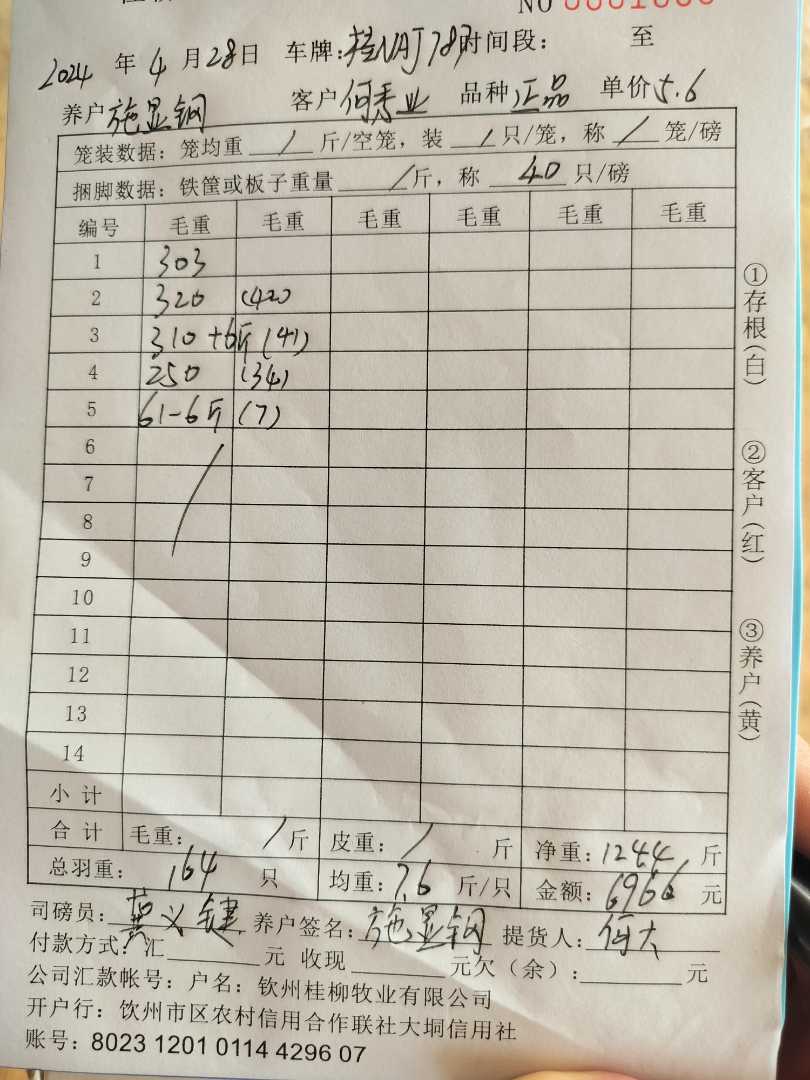 NO 0001000
2024 年 4 月 28 日 车牌: 桂NAJ787 时间段: 至
养户 施显钢 客户 何秀业 品种 正品 单价 5.6
笼装数据: 笼均重 / 斤/空笼, 装 / 只/笼, 称 / 笼/磅
捆脚数据: 铁筐或板子重量 / 斤, 称 40 只/磅
编号 毛重 毛重 毛重 毛重 毛重 毛重
1 303
2 320 (42)
3 310+6斤 (41)
4 250 (34)
5 61-6斤 (7)
6
7
8
9
10
11
12
13
14
小 计
合 计 毛重: / 斤 皮重: / 斤 净重: 1244 斤
总羽重: 164 只 均重: 7.6 斤/只 金额: 6966 元
司磅员: 义键 养户签名: 施显钢 提货人: 何大
付款方式: 汇 元 收现 元欠(余): 元
公司汇款帐号: 户名: 钦州桂柳牧业有限公司
开户行: 饮州市区农村信用合作联社大垌信用社
账号: 8023 1201 0114 4296 07
①存根(白)
②客户(红)
③养户(黄)